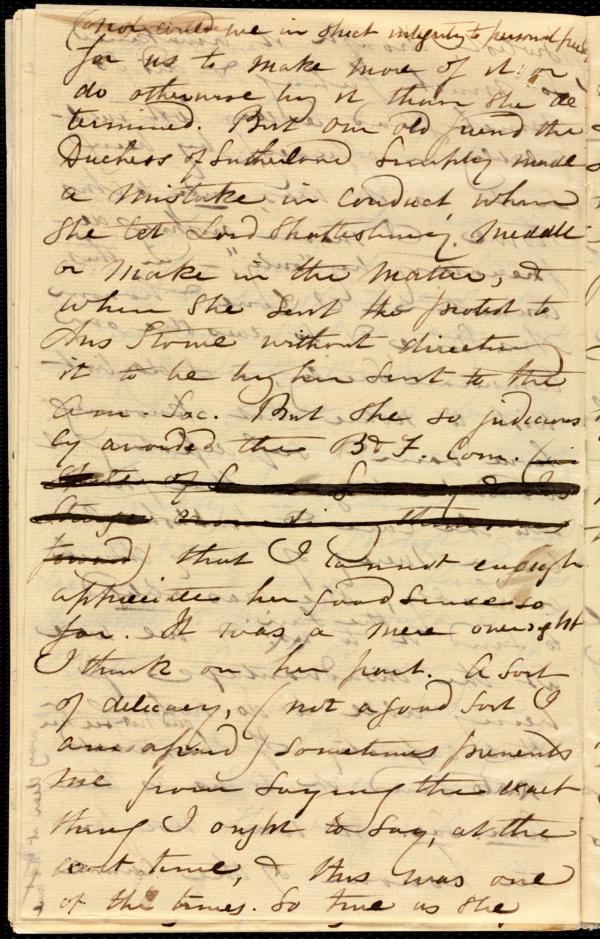 (nor could we in strict integrity to personal
for us to make more of it or
do otherwise by it than she de
termined. But our old friend the
Duchess of Sutherland simply made
a mistake in conduct when
she let Lord Shaftesbury meddle
or make in the matter, &
when she sent the protest to
Mrs Stowe without directing
it to be by her sent to the
Am. Soc. But she so judicious
ly avoided the B & F. Com. (in
of
forward) that I cannot enough
appreciate her good sense so
far. It was a mere oversight
I think on her part. A sort
of delicacy, (not a good sort I
am afraid) sometimes prevents
me from saying the exact
thing I ought to say, at the
exact time, & this was one
of the times. So true as she